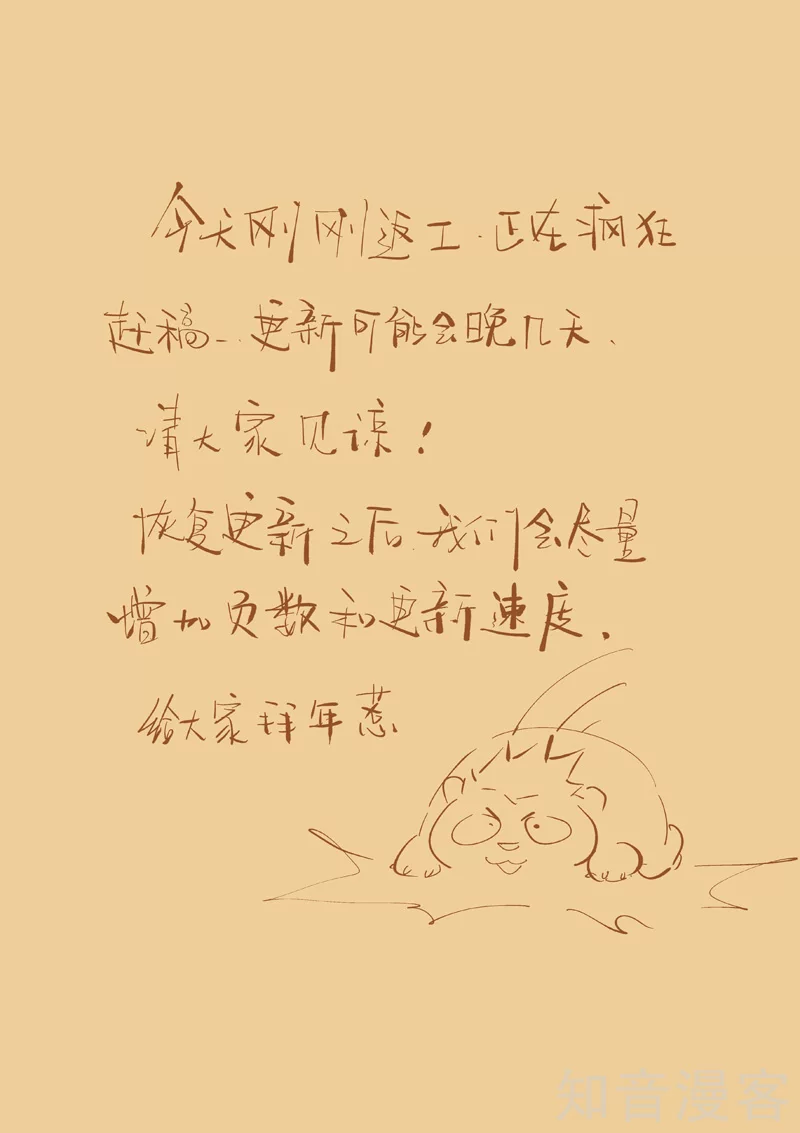 今天刚刚返工.正在疯狂
赶稿...更新可能会晚几天.
请大家见谅！
恢复更新之后.我们会尽量
增加页数和更新速度.
给大家拜年惹
知音漫客